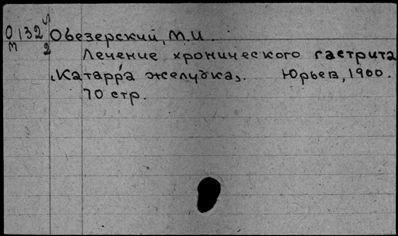 О 132 л Овезерский, М.И.
М 2
Лечение хронического гастрита
„Катарра желудка". Юрьев, 1900.
70 стр.